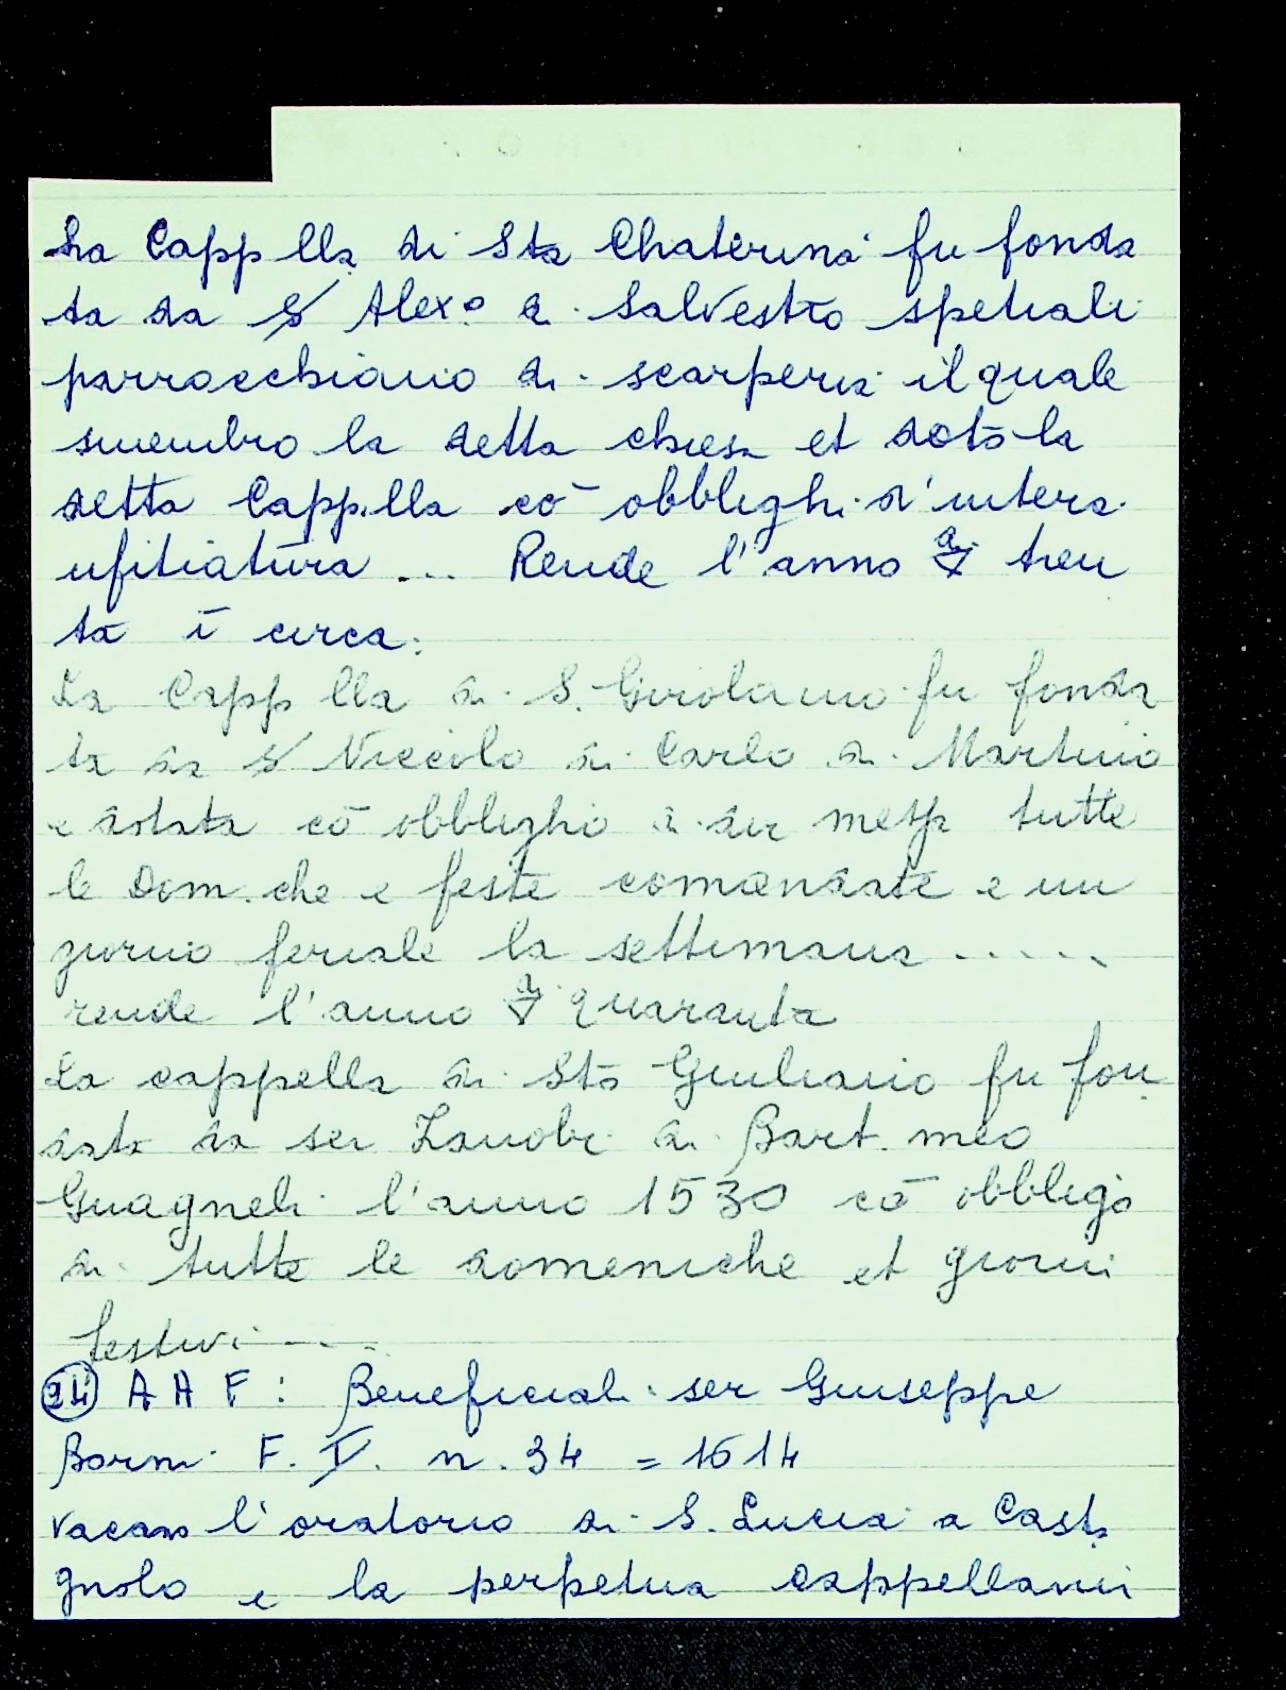 La Capp lla di Sta Chaterina fu fonda
ta da S Alex.o d. Salvestro spetiali
parrocchiano di scarperia il quale
smembro la detta chiesa et dotò la
detta Cappella cō obblighi d'intera
ufitiatura ... Rende l'anno tren
ta ī circa.
La Capp lla di S. Girolamo fu fonda
ta da S Niccolo di Carlo di Martino
e dotata cō obbligho di dir tutte
le Dom.che e feste comandate e un
giorno feriale la settimana .....
rende l'anno quaranta
La cappella di Sto Giuliano fu fon
data da ser Zanobi di Bart.meo
Guagneli l'anno 1530 cō obbligo
di tutte le domeniche et giorni
festivi ....
24 A A F : Beneficiali ser Giuseppe
Borni F. V. n. 34 = 1614
l'oratorio di S. Lucia a Casta
gnolo e la perpetua cappellani